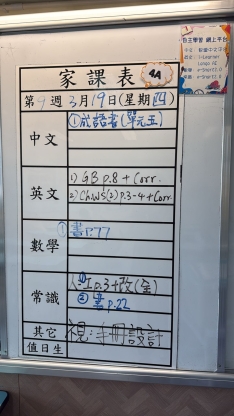 自主學習 網上平台
家課表 4A
第9週3月19日(星期四)
中文
①成語書(單元五)
英文
1) GB p.8 + Corr.
2) Ch.WS(2) p.3-4 + Corr.
數學
①書P.77
常識
p.3+改(全)
② 書 p.22
其它
視:手冊設計
值日生